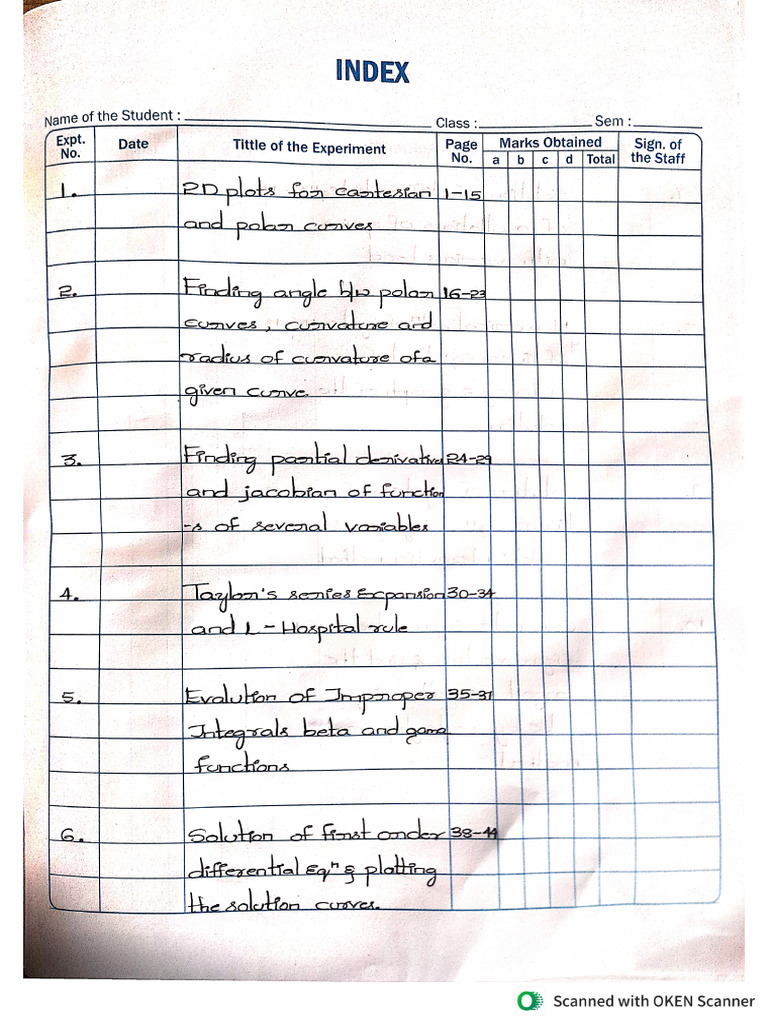 INDEX
Name of the Student : Class : Sem :
Expt. No. Date Tittle of the Experiment Page No. Marks Obtained a b c d Total Sign. of the Staff
1. 2D plots for cartesian 1-15
and polar curves
2. Finding angle b/w polar 16-23
curves, curvature and
radius of curvature of a
given curve
3. Finding partial derivative 24-29
and jacobian of function
-s of several variables
4. Taylor's series Expansion 30-34
and L-Hospital rule
5. Evalution of Improper 35-37
Integrals beta and gama
functions
6. Solution of first order 38-44
differential Eqⁿ & plotting
the solution curves.
Scanned with OKEN Scanner